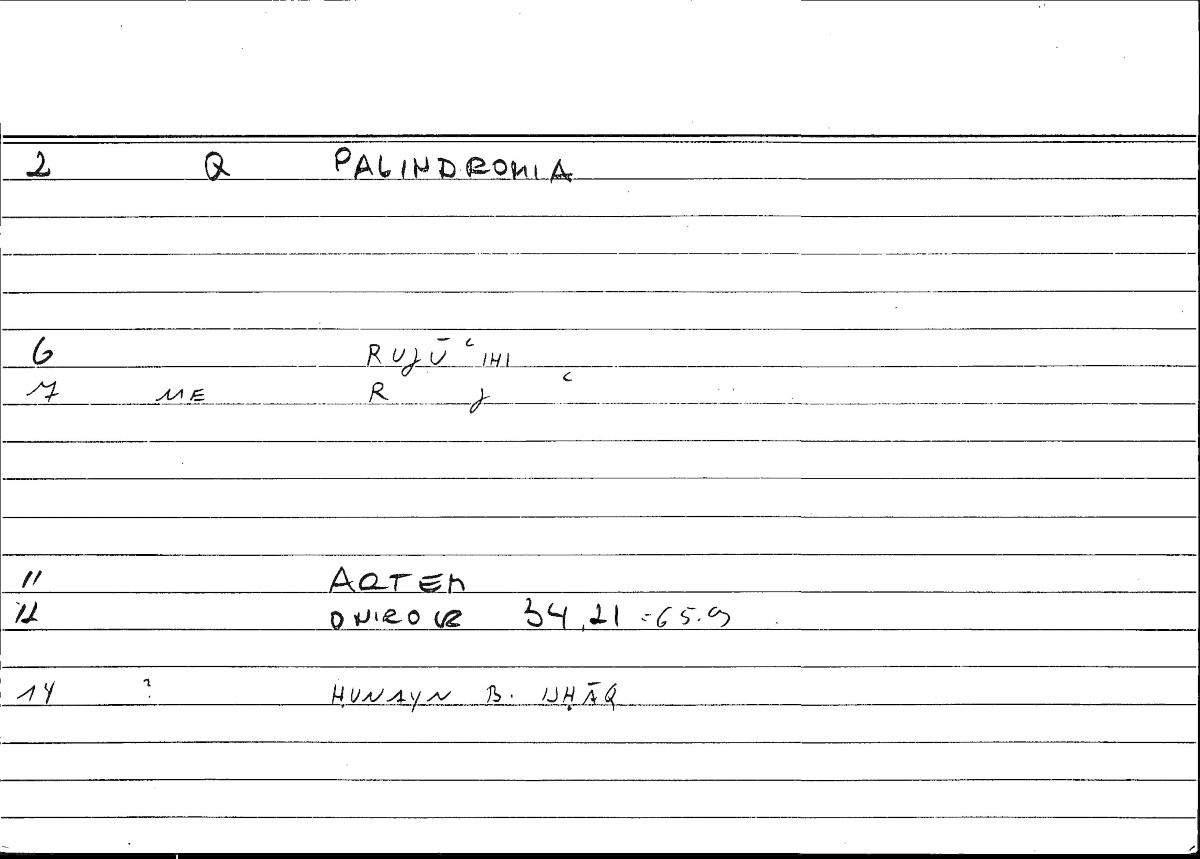 2 Q PALINDROMIA
6 RUJŪ‘ IHI
7 ME R J ‘
11 ARTEM
12 ONIROCR 34,21 = 65.9
14 ? ḤUNAYN B. ISḤĀQ